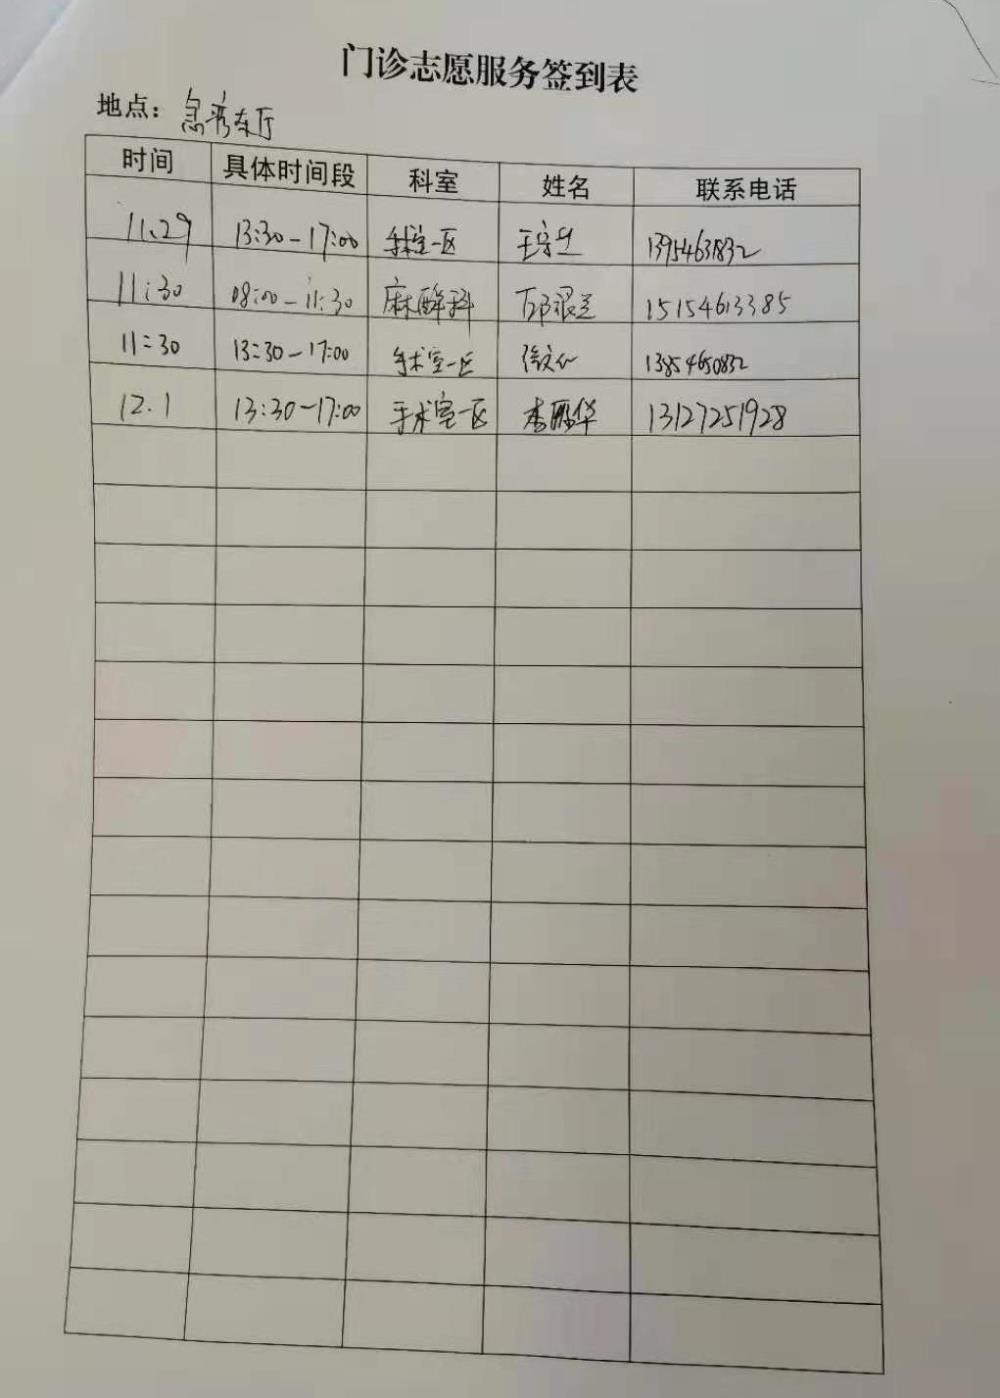 门诊志愿服务签到表
地点: 急诊东厅
时间 具体时间段 科室 姓名 联系电话
11.29 13:30-17:00 手术室一区 王
11:30 08:00-11:30 麻醉科 15154613385
11:30 13:30-17:00 手术室一区 13854650832
12.1 13:30-17:00 手术室一区 李丽华 13127251928